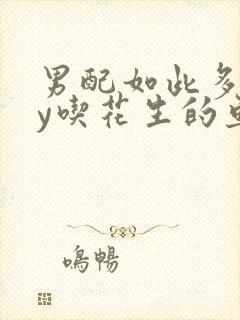 男配如此多
y喫花生的
鳴暢